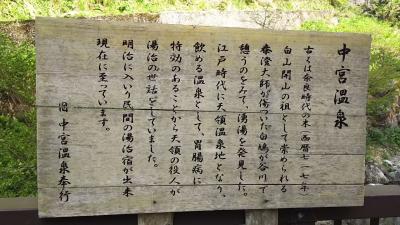 中宮温泉
古くは奈良時代の末(西暦七一七年)
白山開山の祖として崇められる
泰澄大師が傷ついた白鳩が谷川で
憩うのをみて、湧湯を発見した。
江戸時代に天領温泉地となり、
飲める温泉として、胃腸病に
特効のあることから天領の役人が
湯治の世話をしていました。
明治に入いり民間の湯治宿が出来
現在に至っています。
旧 中宮温泉奉行